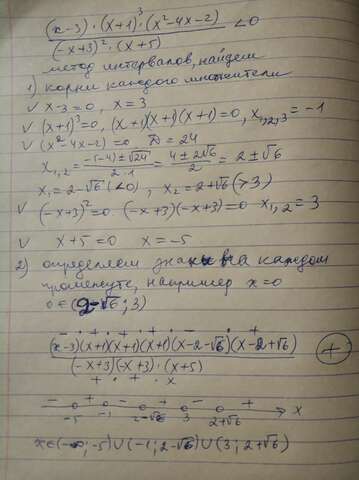 (x-3)·(x+1)³·(x²-4x-2) < 0
(-x+3)²·(x+5)
метод интервалов, найдем
1) корни каждого множители
∨ x-3=0, x=3
∨ (x+1)³=0, (x+1)(x+1)(x+1)=0, x₁,₂,₃=-1
∨ (x²-4x-2)=0 D=24
x₁,₂ = -(-4)±√24 / 2·1 = 4±2√6 / 2 = 2±√6
x₁=2-√6 (<0), x₂=2+√6 (>3)
∨ (-x+3)²=0 (-x+3)(-x+3)=0 x₁,₂=3
∨ x+5=0 x=-5
2) определяем знак в каждом
промежутке, например x=0
0∈(2-√6; 3)
- · + · + · + · - · +
(x-3)(x+1)(x+1)(x+1)(x-2-√6)(x-2+√6) (+)
(-x+3)(-x+3)·(x+5)
+ · + · x
- + - + - + x
-5 -1 2-√6 3 2+√6
x∈(-∞;-5)∪(-1;2-√6)∪(3;2+√6)